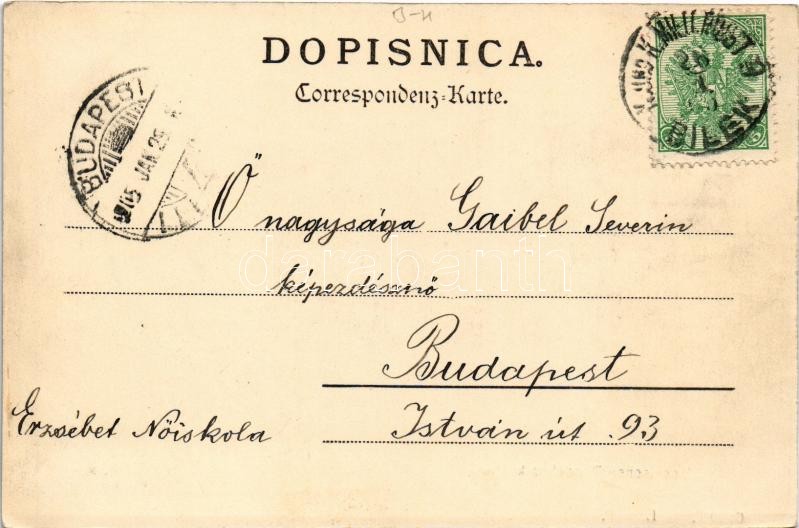 DOPISNICA.
Correspondenz-Karte.
K. UND K. MILIT. POST
BILEK
BUDAPEST
905 JAN 29
Ő nagysága Gaibel Severin
képezdésznő
Budapest
Erzsébet Nőiskola István út. 93
darabanth